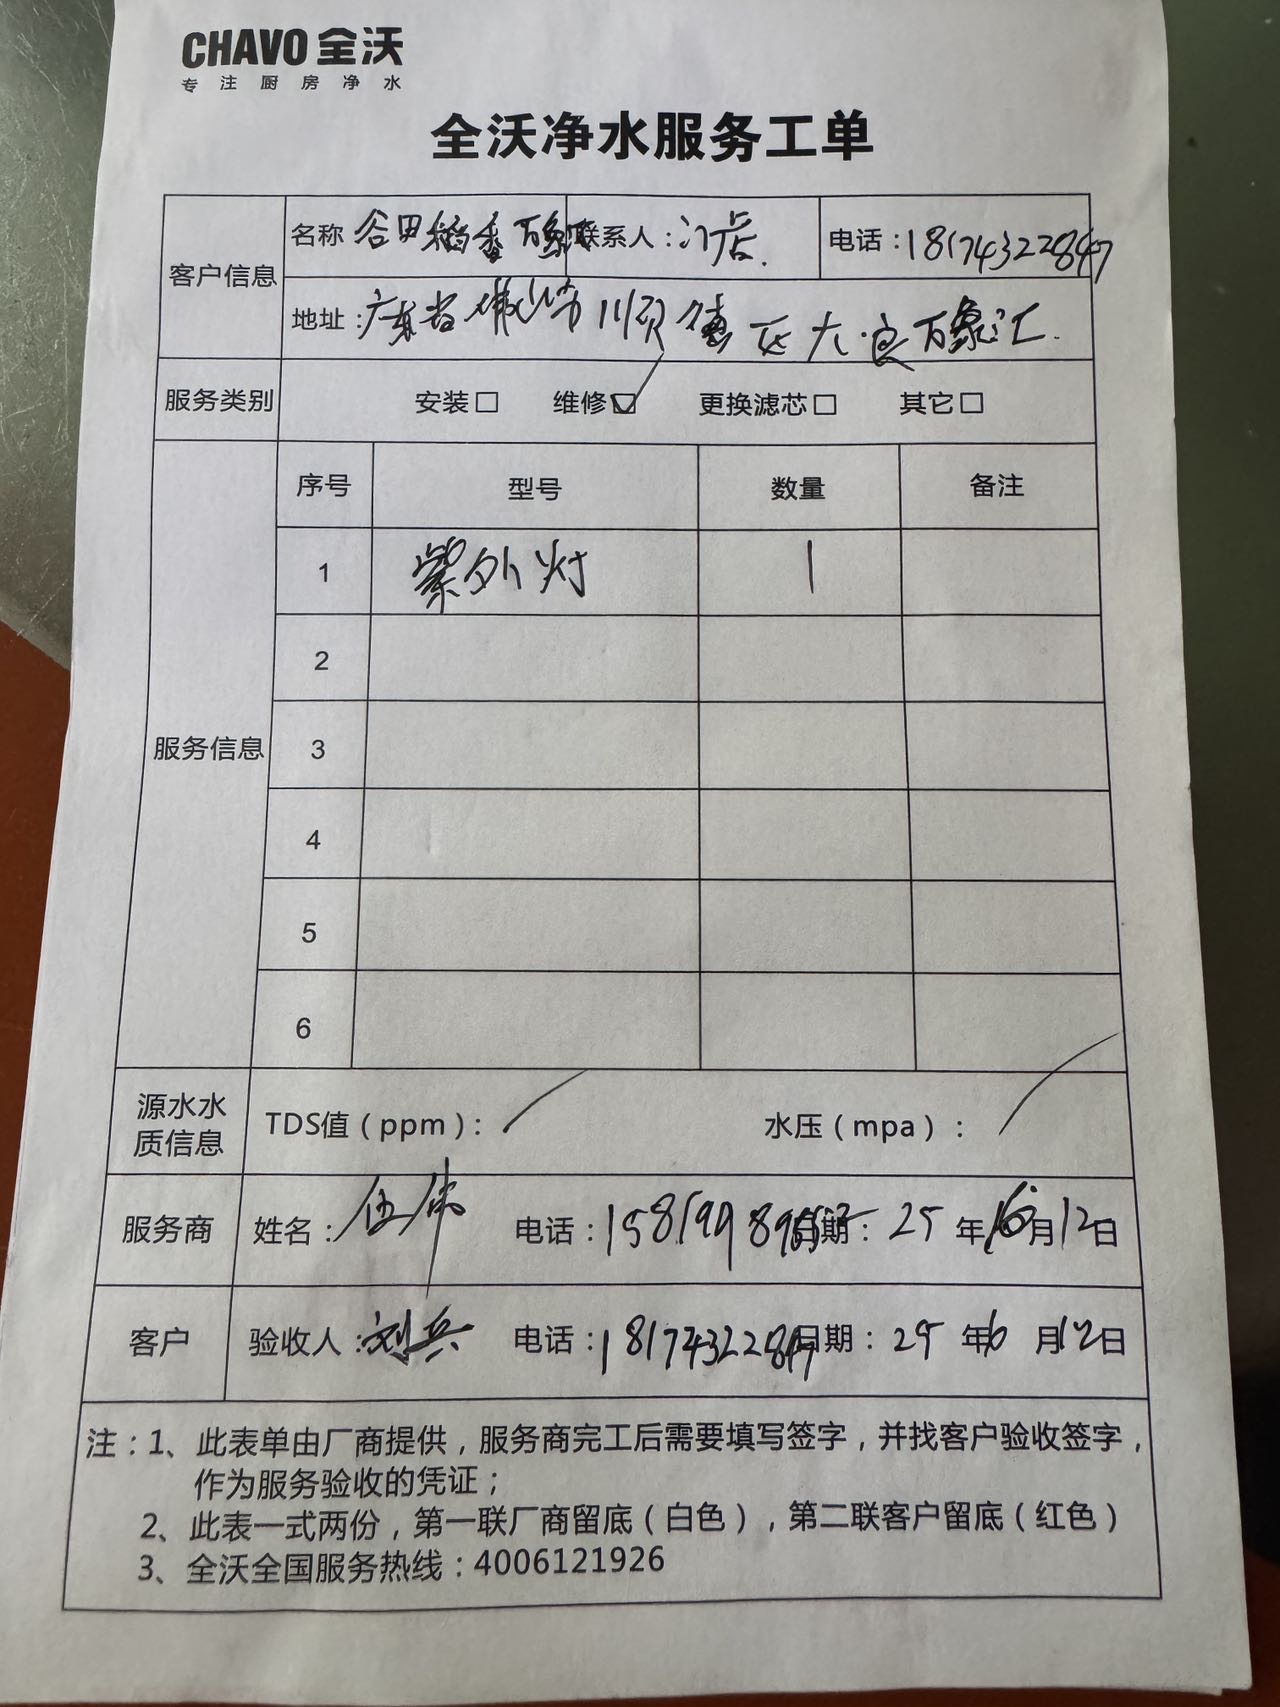 CHAVO 全沃
专注厨房净水
全沃净水服务工单
客户信息 名称 谷田稻香万象汇 联系人：门店. 电话：18174322847
地址：广东省佛山市顺德区大良万象汇.
服务类别 安装□ 维修☑ 更换滤芯□ 其它□
服务信息 序号 型号 数量 备注
1 紫外灯 1
2
3
4
5
6
源水水质信息 TDS值（ppm）： 水压（mpa）：
服务商 姓名：伍伟 电话： 日期：25年6月12日
客户 验收人：刘兵 电话：18174322847 日期：25年6月12日
注：1、此表单由厂商提供，服务商完工后需要填写签字，并找客户验收签字，
作为服务验收的凭证；
2、此表一式两份，第一联厂商留底（白色），第二联客户留底（红色）
3、全沃全国服务热线：4006121926